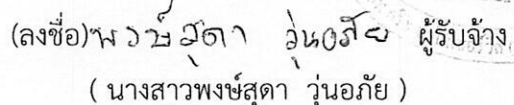 (ลงชื่อ) พงษ์สุดา วุ่นอภัย ผู้รับจ้าง
( นางสาวพงษ์สุดา วุ่นอภัย )